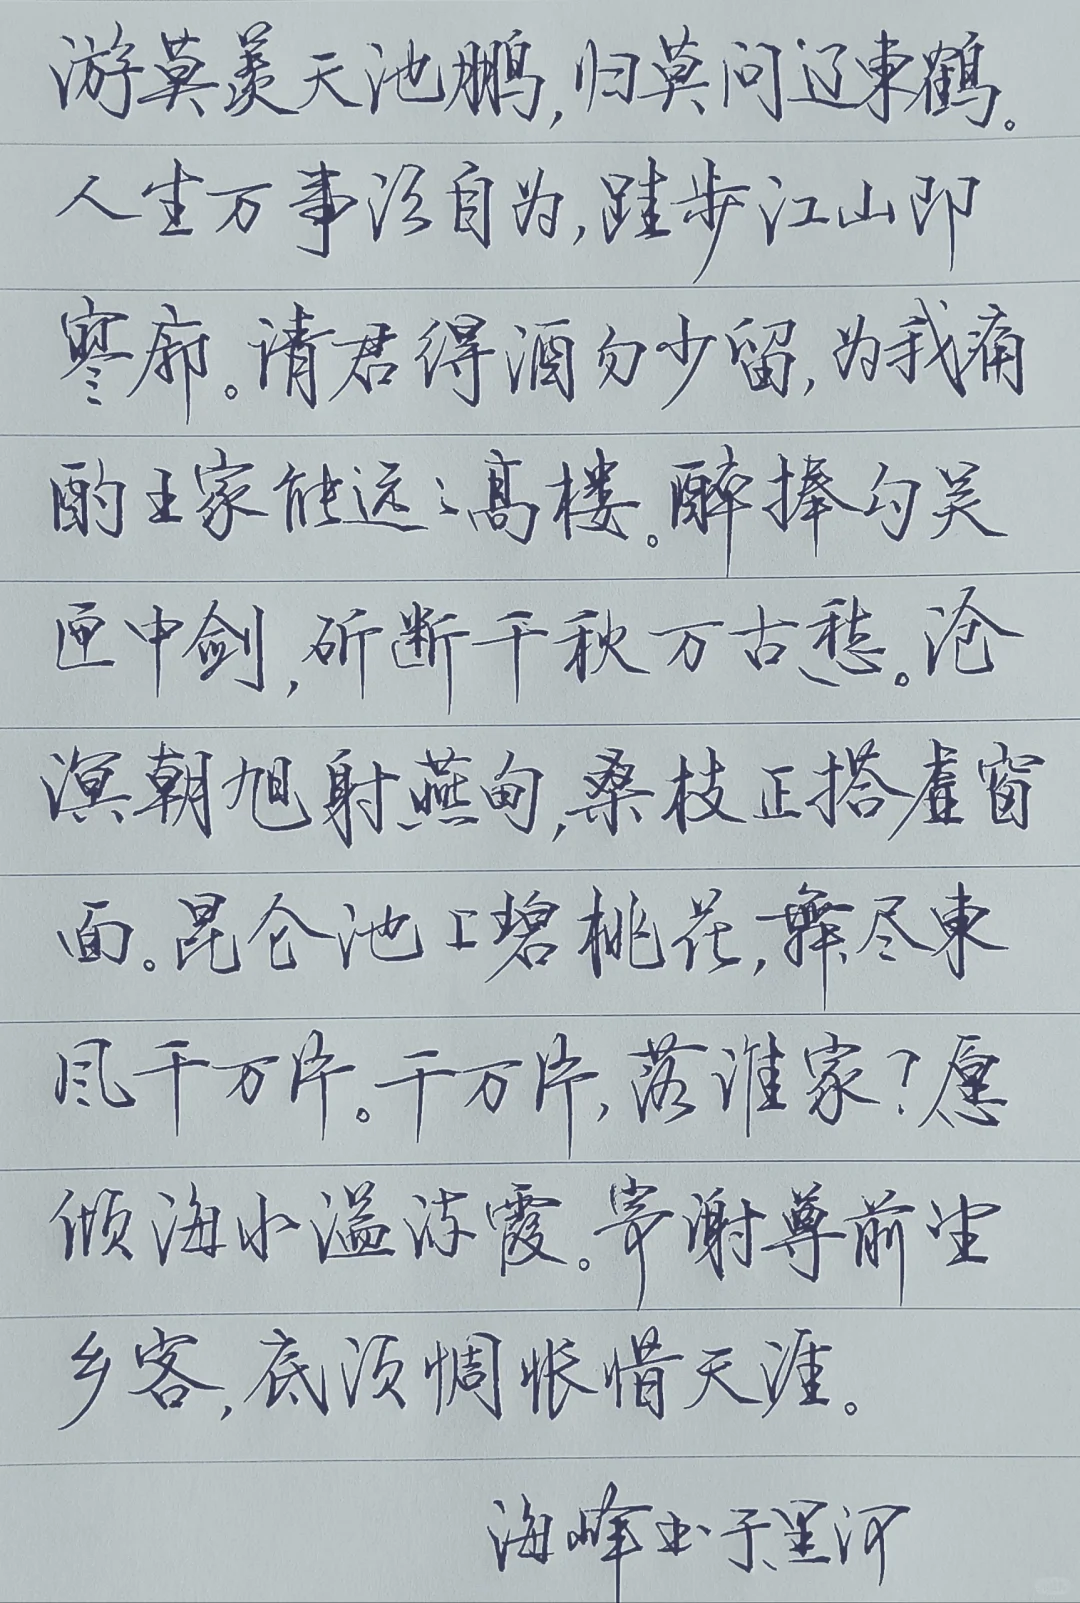 游莫羡天池鹏，归莫问辽東鹤。
人生万事须自为，跬步江山即
寥廓。请君得酒勿少留，为我痛
酌王家能远之高楼。醉捧勾吴
匣中剑，斫断千秋万古愁。沧
溟朝旭射燕甸，桑枝正搭虚窗
面。昆仑池上碧桃花，舞尽東
风千万片。千万片，落谁家？愿
倾海水溢流霞。寄谢尊前望
乡客，底须惆怅惜天涯。
海峰书于黑河